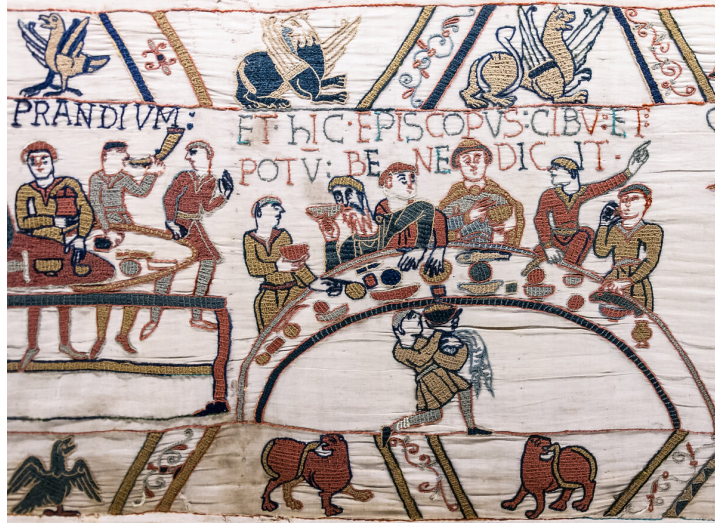 PRANDIVM:
ET·hIC·EPISCOPVS:CIBV:ET·
POTV: BE NE DIC IT·